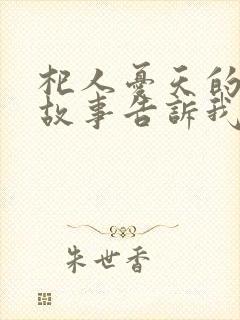 杞人憂天的
故事告訴我
朱世香